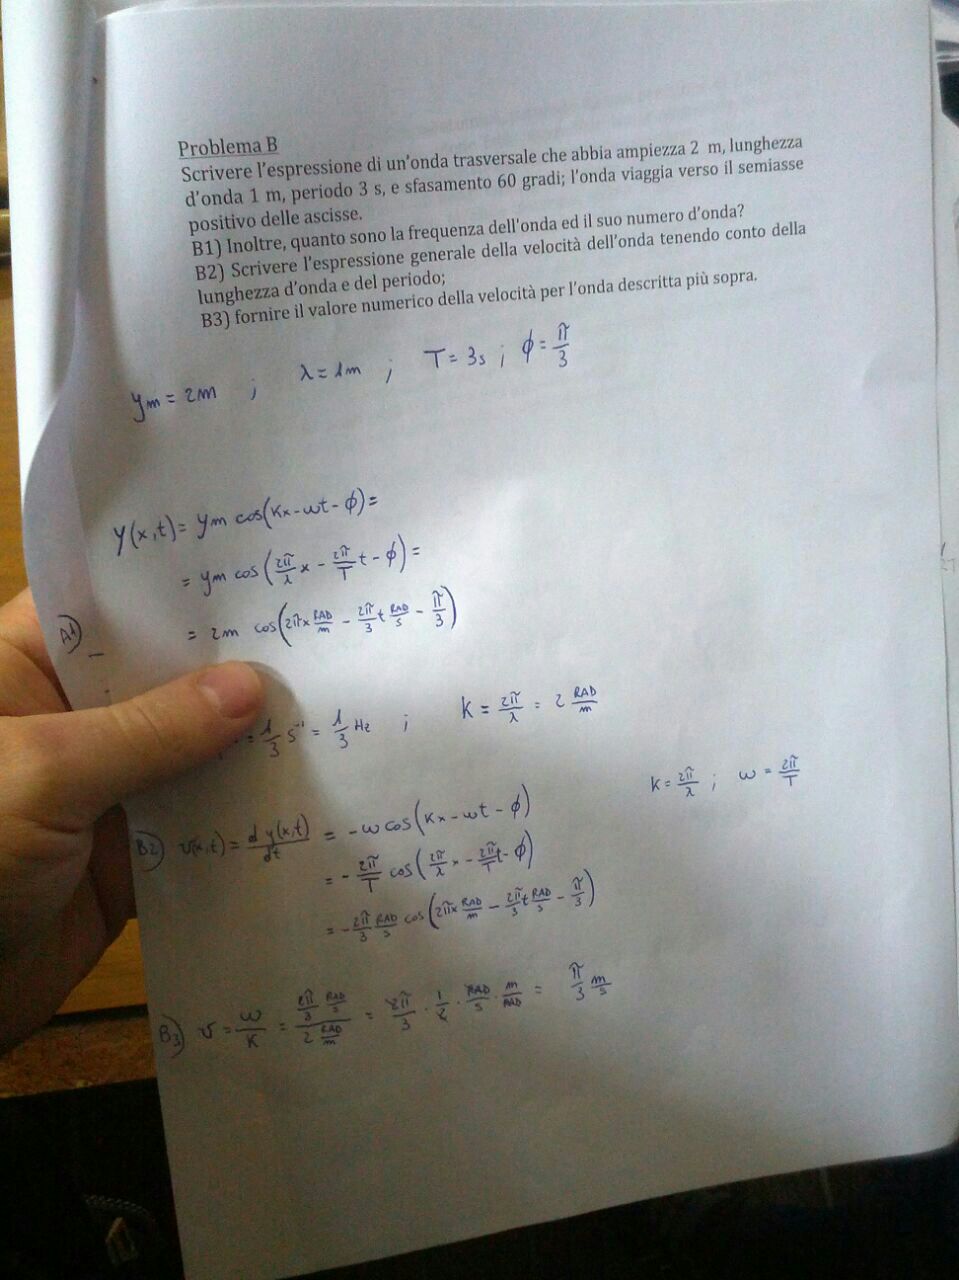 Problema B
Scrivere l'espressione di un'onda trasversale che abbia ampiezza 2 m, lunghezza
d'onda 1 m, periodo 3 s, e sfasamento 60 gradi; l'onda viaggia verso il semiasse
positivo delle ascisse.
B1) Inoltre, quanto sono la frequenza dell'onda ed il suo numero d'onda?
B2) Scrivere l'espressione generale della velocità dell'onda tenendo conto della
lunghezza d'onda e del periodo;
B3) fornire il valore numerico della velocità per l'onda descritta più sopra.
ym = 2m ; λ = 1m ; T = 3s ; ϕ = π/3
y(x,t) = ym cos(kx - ωt - ϕ) =
= ym cos(2π/λ x - 2π/T t - ϕ) =
= 2m cos(2πx RAD/m - 2π/3 t RAD/s - π/3)
= 1/3 s⁻¹ = 1/3 Hz ; k = 2π/λ = 2 RAD/m
k = 2π/λ ; ω = 2π/T
B2) v(x,t) = d y(x,t)/dt = -ω cos(kx - ωt - ϕ)
= - 2π/T cos(2π/λ x - 2π/T t - ϕ)
= - 2π/3 RAD/s cos(2πx RAD/m - 2π/3 t RAD/s - π/3)
B3) v = ω/k = (2π/3 RAD/s)/(2 RAD/m) = 2π/3 · 1/2 · RAD/s · m/RAD = π/3 m/s